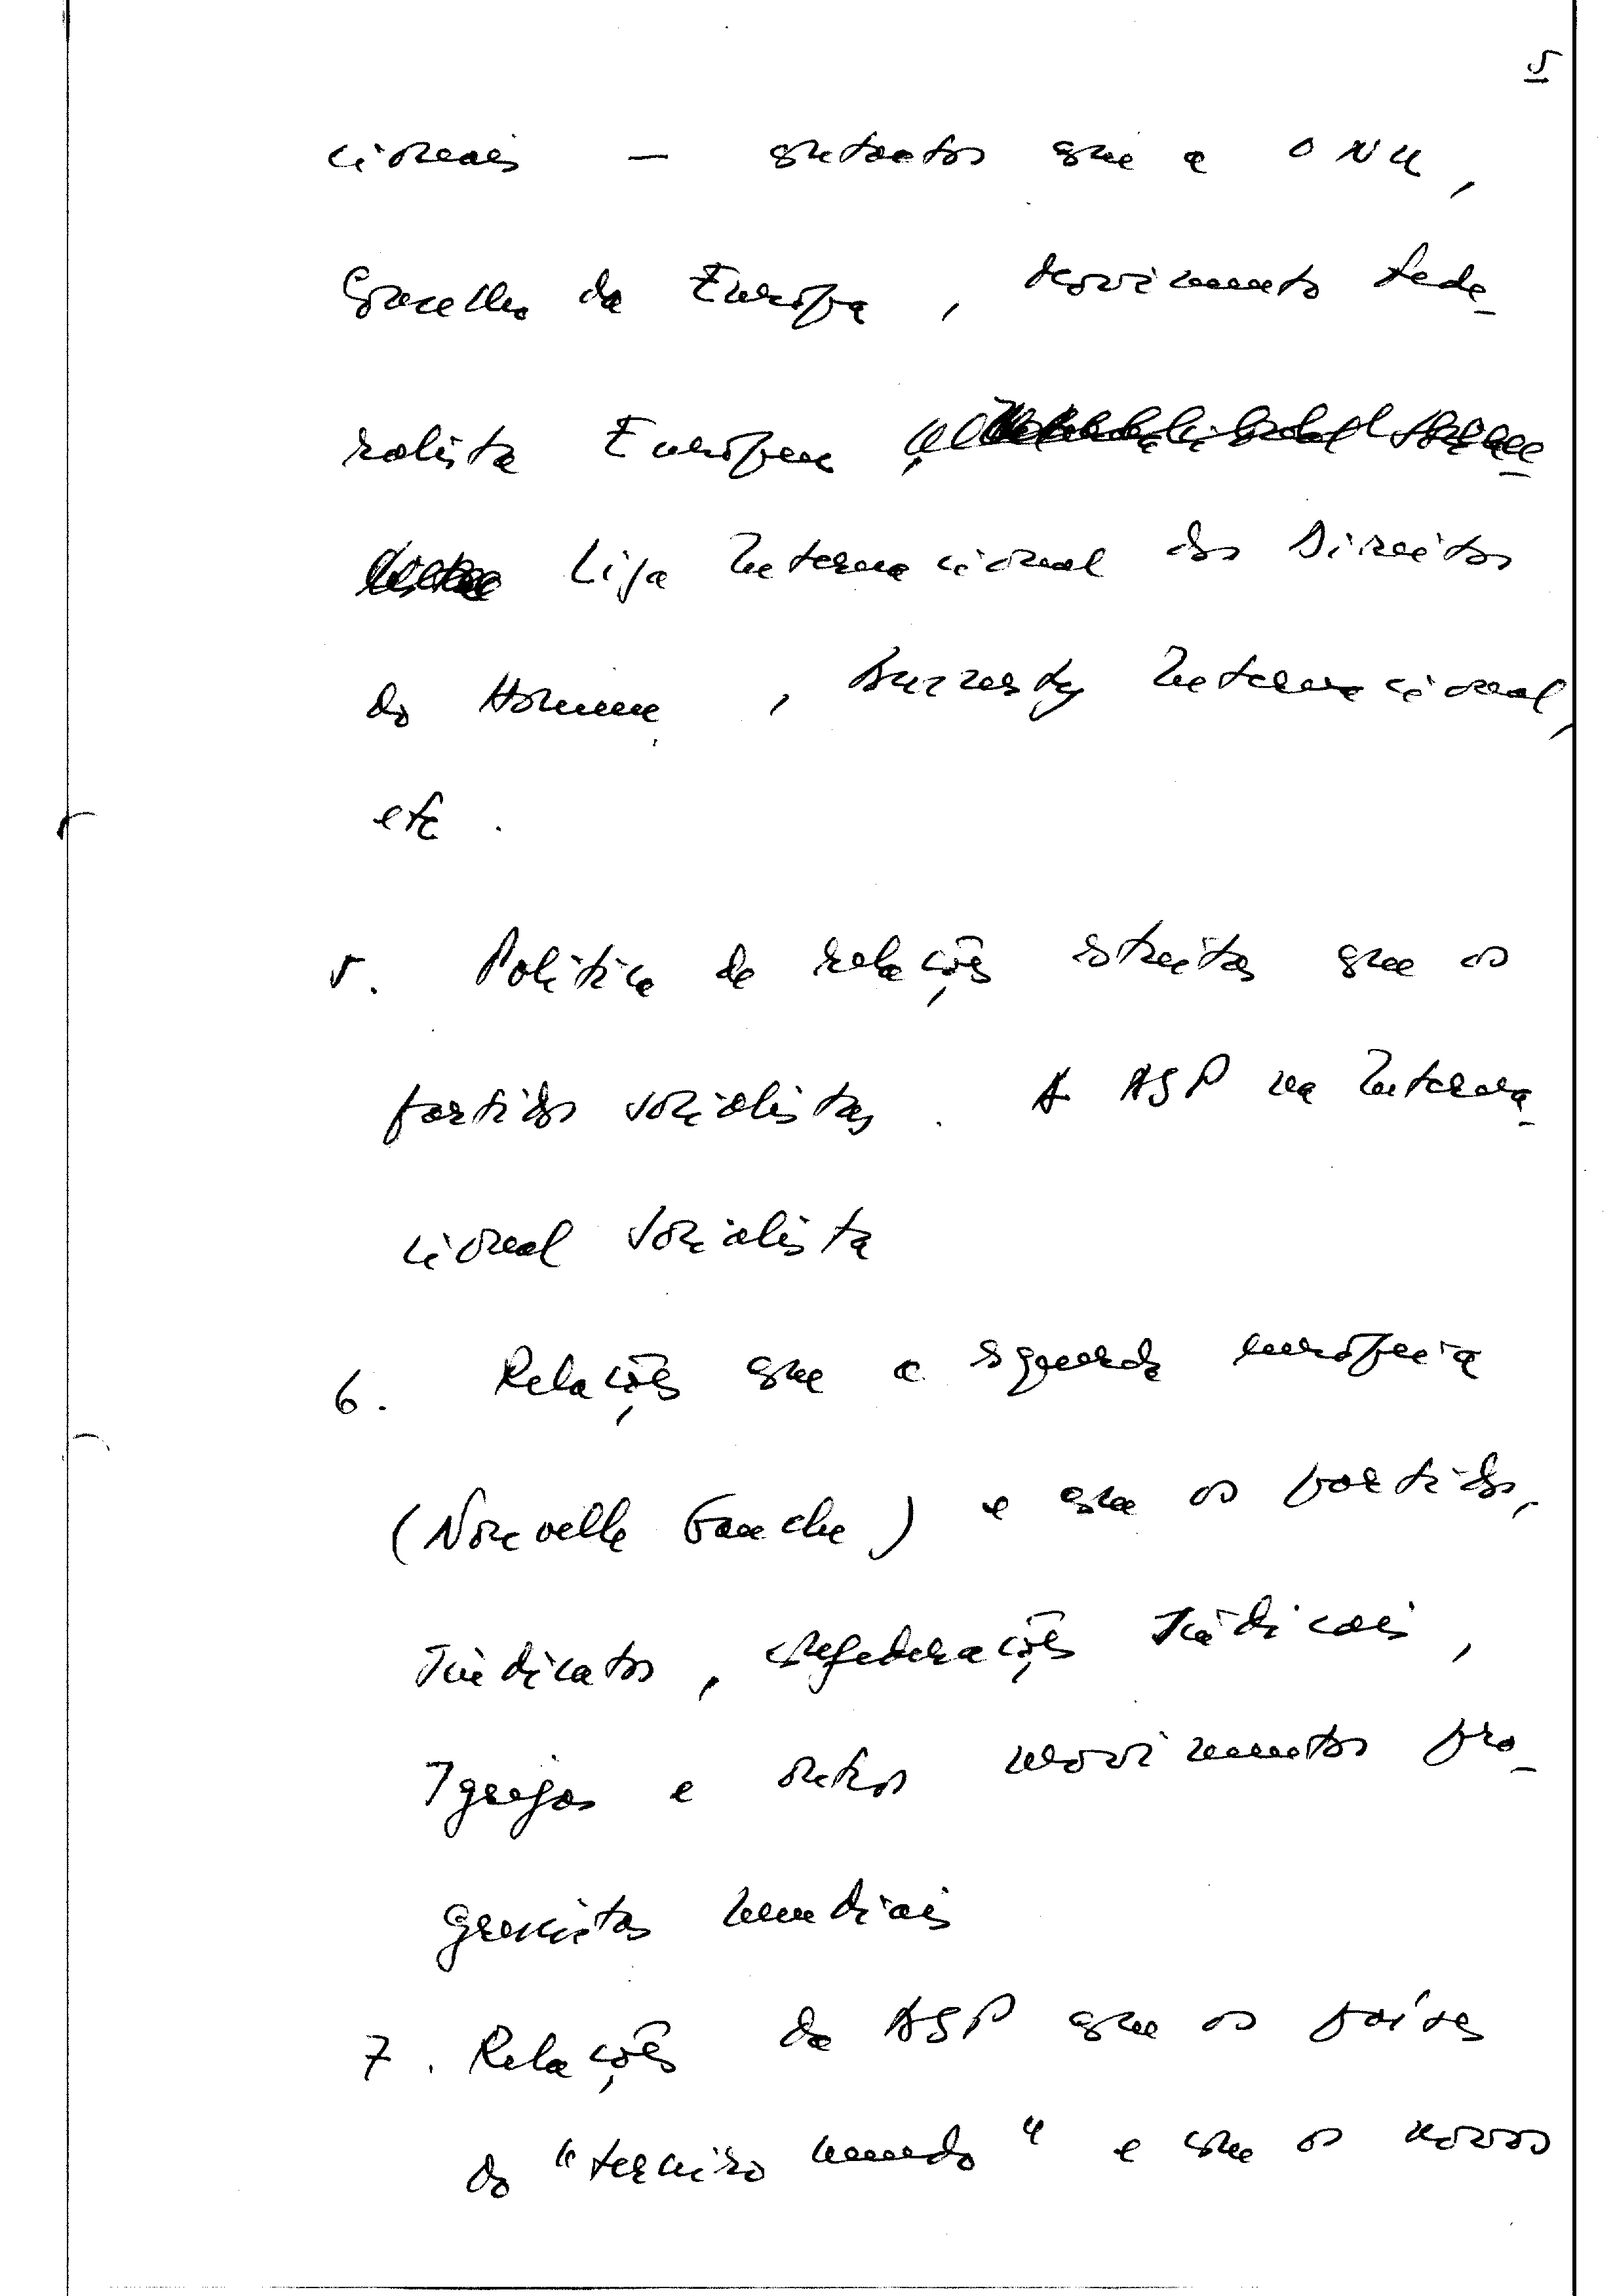 5
cionais — contactos com a ONU,
Conselho da Europa, Movimento Fede-
ralista Europeu,
Liga Internacional dos Direitos
do Homem, Amnesty Internacional,
etc.
5. Política de relações estreitas com os
partidos socialistas. A ASP na Interna-
cional Socialista
6. Relações com a esquerda europeia
(Nouvelle Gauche) e com os partidos,
Sindicatos, confederações sindicais,
Igrejas e outros movimentos pro-
gressistas mundiais
7. Relações da ASP com os países
do "terceiro mundo" e com os novos